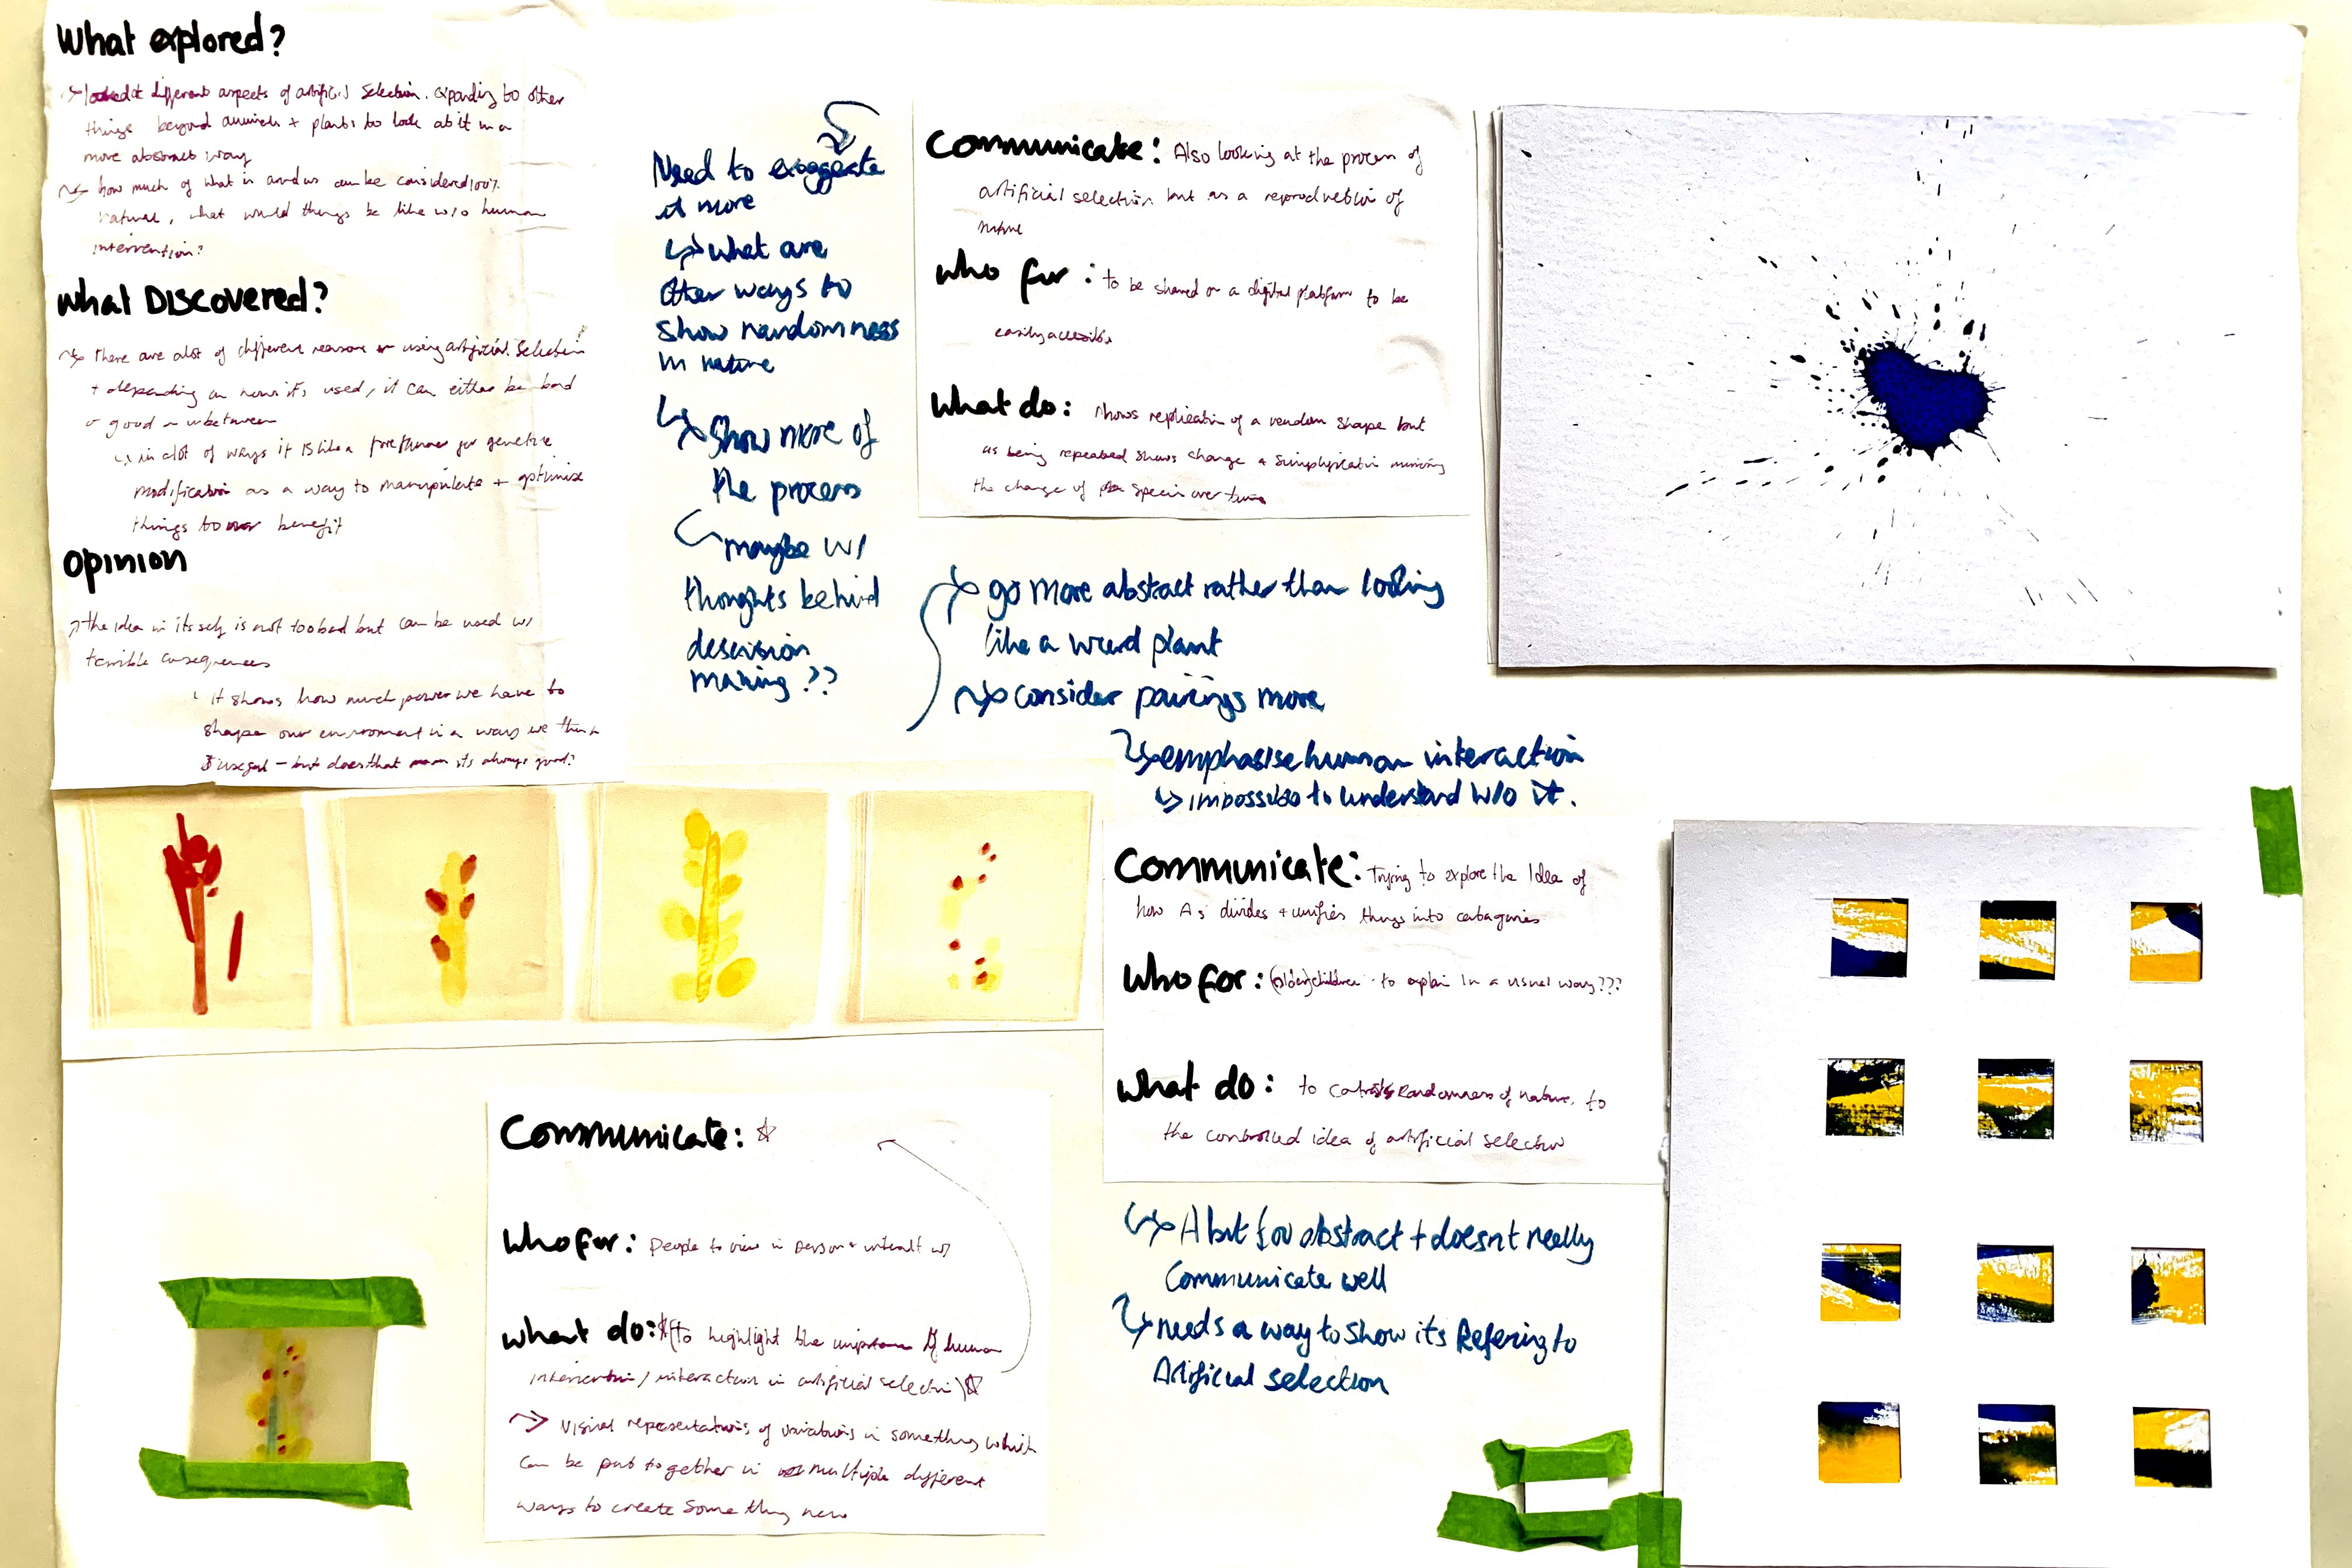 What explored?
looked at different aspects of artificial selection. expanding to other
things beyond animals + plants to look at it in a
more abstract way
how much of what is around us can be considered 100%
natural, what would things be like w/o human
intervention?
What DISCOVERED?
there are alot of different reasons using artificial selection
+ depending on how it's used, it can either be bad
or good or inbetween
in alot of ways it is like a forerunner for genetic
modification as a way to manipulate + optimise
things to our benefit
Opinion
the idea in its self is not too bad but can be used w/
terrible consequences
it shows how much power we have to
shape our enviroment in a ways we think
useful - but does that mean its always good?
Need to exaggerate
it more
what are
other ways to
show randomness
in nature
Show more of
the process
maybe w/
thoughts behind
descision
making ??
Communicate: Also looking at the process of
artificial selection but as a reproduction of
nature
who for: to be shared on a digital platform to be
easily accessible
What do: shows replication of a random shape but
as being repeated shows change + simplification mimicing
the change of species over time
go more abstract rather than looking
like a weird plant
consider pairings more
emphasise human interaction
impossible to understand w/o it.
Communicate: Trying to explore the idea of
how As divides + unifies things into catagories
Who for: (older) children - to explain in a visual way???
What do: to contrast Randomness of nature, to
the controlled idea of artificial selection
A bit too abstract + doesnt really
Communicate well
needs a way to show its Refering to
Artificial selection
Communicate:
Who for: People to view in person + interact w/
What do: (to highlight the importance of human
intervention / interaction in artificial selection)
Visual representations of variations in something which
can be put together in multiple different
ways to create something new